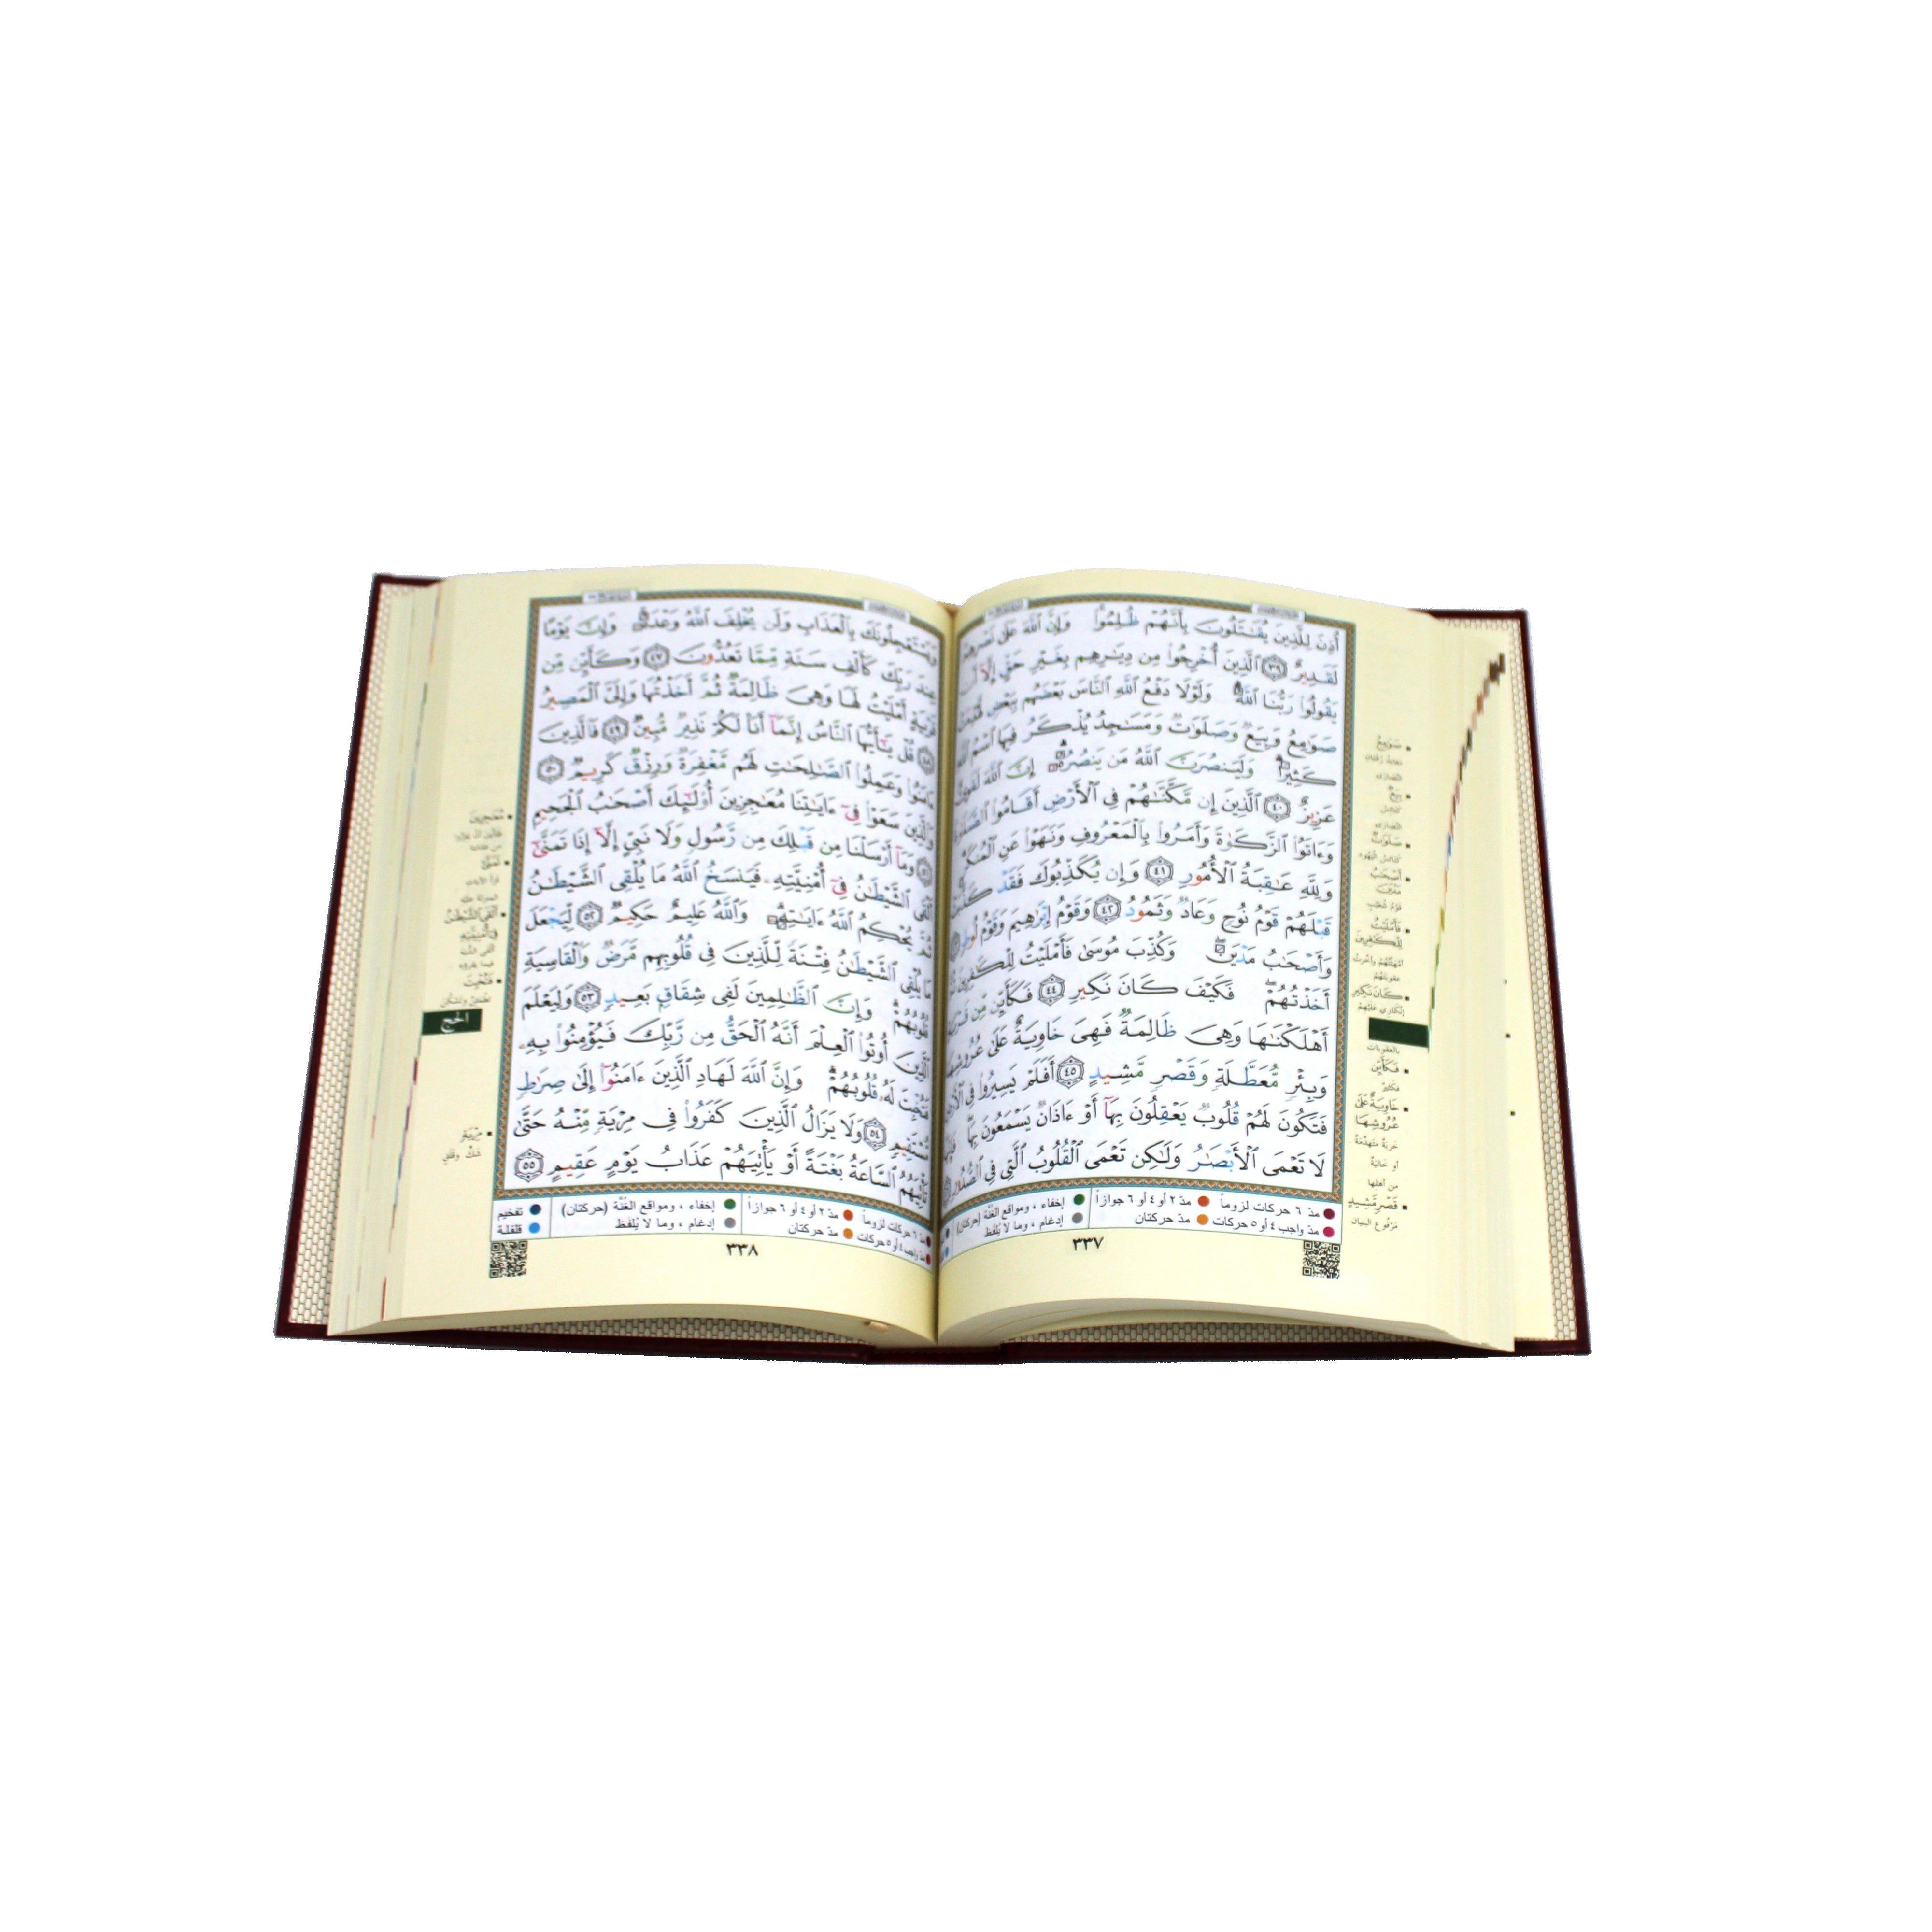 أُذِنَ لِلَّذِينَ يُقَٰتَلُونَ بِأَنَّهُمْ ظُلِمُوا۟ وَإِنَّ ٱللَّهَ عَلَىٰ نَصْرِهِمْ
لَقَدِيرٌ ٣٩ ٱلَّذِينَ أُخْرِجُوا۟ مِن دِيَٰرِهِم بِغَيْرِ حَقٍّ إِلَّآ أَن
يَقُولُوا۟ رَبُّنَا ٱللَّهُ وَلَوْلَا دَفْعُ ٱللَّهِ ٱلنَّاسَ بَعْضَهُم بِبَعْضٍ لَّهُدِّمَتْ
صَوَٰمِعُ وَبِيَعٌ وَصَلَوَٰتٌ وَمَسَٰجِدُ يُذْكَرُ فِيهَا ٱسْمُ ٱللَّهِ
كَثِيرًا وَلَيَنصُرَنَّ ٱللَّهُ مَن يَنصُرُهُۥٓ إِنَّ ٱللَّهَ لَقَوِىٌّ
عَزِيزٌ ٤٠ ٱلَّذِينَ إِن مَّكَّنَّٰهُمْ فِى ٱلْأَرْضِ أَقَامُوا۟ ٱلصَّلَوٰةَ
وَءَاتَوُا۟ ٱلزَّكَوٰةَ وَأَمَرُوا۟ بِٱلْمَعْرُوفِ وَنَهَوْا۟ عَنِ ٱلْمُنكَرِ
وَلِلَّهِ عَٰقِبَةُ ٱلْأُمُورِ ٤١ وَإِن يُكَذِّبُوكَ فَقَدْ كَذَّبَتْ
قَبْلَهُمْ قَوْمُ نُوحٍ وَعَادٌ وَثَمُودُ ٤٢ وَقَوْمُ إِبْرَٰهِيمَ وَقَوْمُ لُوطٍ
وَأَصْحَٰبُ مَدْيَنَ وَكُذِّبَ مُوسَىٰ فَأَمْلَيْتُ لِلْكَٰفِرِينَ
أَخَذْتُهُمْ فَكَيْفَ كَانَ نَكِيرِ ٤٤ فَكَأَيِّن مِّن قَرْيَةٍ
أَهْلَكْنَٰهَا وَهِىَ ظَالِمَةٌ فَهِىَ خَاوِيَةٌ عَلَىٰ عُرُوشِهَا
وَبِئْرٍ مُّعَطَّلَةٍ وَقَصْرٍ مَّشِيدٍ ٤٥ أَفَلَمْ يَسِيرُوا۟ فِى ٱلْأَرْضِ
فَتَكُونَ لَهُمْ قُلُوبٌ يَعْقِلُونَ بِهَآ أَوْ ءَاذَانٌ يَسْمَعُونَ بِهَا
لَا تَعْمَى ٱلْأَبْصَٰرُ وَلَٰكِن تَعْمَى ٱلْقُلُوبُ ٱلَّتِى فِى ٱلصُّدُورِ
مدّ ٦ حركات لزوماً مدّ ٢ أو ٤ أو ٦ جوازاً إخفاء ، ومواقع الغُنَّة (حركتان)
مدّ واجب ٤ أو ٥ حركات مدّ حركتان إدغام ، وما لا يُلفَظ
٣٣٧
صَوَٰمِعُ
بِيَعٌ
صَلَوَٰتٌ
أَصْحَٰبُ مَدْيَنَ
قوم شعيب
فَأَمْلَيْتُ لِلْكَٰفِرِينَ
كَانَ نَكِيرِ
إنكاري عليهم
بالعقوبات
فَكَأَيِّن
فكثير
خَاوِيَةٌ عَلَىٰ عُرُوشِهَا
خربة متهدّمة
أو خالية
من أهلها
قَصْرٍ مَّشِيدٍ
مرفوع البنيان
وَيَسْتَعْجِلُونَكَ بِٱلْعَذَابِ وَلَن يُخْلِفَ ٱللَّهُ وَعْدَهُۥ وَإِنَّ يَوْمًا
عِندَ رَبِّكَ كَأَلْفِ سَنَةٍ مِّمَّا تَعُدُّونَ ٤٧ وَكَأَيِّن مِّن
قَرْيَةٍ أَمْلَيْتُ لَهَا وَهِىَ ظَالِمَةٌ ثُمَّ أَخَذْتُهَا وَإِلَىَّ ٱلْمَصِيرُ
٤٨ قُلْ يَٰٓأَيُّهَا ٱلنَّاسُ إِنَّمَآ أَنَا۠ لَكُمْ نَذِيرٌ مُّبِينٌ ٤٩ فَٱلَّذِينَ
ءَامَنُوا۟ وَعَمِلُوا۟ ٱلصَّٰلِحَٰتِ لَهُم مَّغْفِرَةٌ وَرِزْقٌ كَرِيمٌ ٥٠
وَٱلَّذِينَ سَعَوْا۟ فِىٓ ءَايَٰتِنَا مُعَٰجِزِينَ أُو۟لَٰٓئِكَ أَصْحَٰبُ ٱلْجَحِيمِ
٥١ وَمَآ أَرْسَلْنَا مِن قَبْلِكَ مِن رَّسُولٍ وَلَا نَبِىٍّ إِلَّآ إِذَا تَمَنَّىٰٓ
أَلْقَى ٱلشَّيْطَٰنُ فِىٓ أُمْنِيَّتِهِۦ فَيَنسَخُ ٱللَّهُ مَا يُلْقِى ٱلشَّيْطَٰنُ
ثُمَّ يُحْكِمُ ٱللَّهُ ءَايَٰتِهِۦ وَٱللَّهُ عَلِيمٌ حَكِيمٌ ٥٢ لِّيَجْعَلَ
مَا يُلْقِى ٱلشَّيْطَٰنُ فِتْنَةً لِّلَّذِينَ فِى قُلُوبِهِم مَّرَضٌ وَٱلْقَاسِيَةِ
قُلُوبُهُمْ وَإِنَّ ٱلظَّٰلِمِينَ لَفِى شِقَاقٍۭ بَعِيدٍ ٥٣ وَلِيَعْلَمَ
ٱلَّذِينَ أُوتُوا۟ ٱلْعِلْمَ أَنَّهُ ٱلْحَقُّ مِن رَّبِّكَ فَيُؤْمِنُوا۟ بِهِۦ
فَتُخْبِتَ لَهُۥ قُلُوبُهُمْ وَإِنَّ ٱللَّهَ لَهَادِ ٱلَّذِينَ ءَامَنُوٓا۟ إِلَىٰ صِرَٰطٍ
مُّسْتَقِيمٍ ٥٤ وَلَا يَزَالُ ٱلَّذِينَ كَفَرُوا۟ فِى مِرْيَةٍ مِّنْهُ حَتَّىٰ
تَأْتِيَهُمُ ٱلسَّاعَةُ بَغْتَةً أَوْ يَأْتِيَهُمْ عَذَابُ يَوْمٍ عَقِيمٍ ٥٥
مدّ ٦ حركات لزوماً مدّ ٢ أو ٤ أو ٦ جوازاً إخفاء ، ومواقع الغُنَّة (حركتان) تفخيم
مدّ واجب ٤ أو ٥ حركات مدّ حركتان إدغام ، وما لا يُلفَظ قلقلة
٣٣٨
مُعَٰجِزِينَ
تَمَنَّىٰ
أَلْقَى ٱلشَّيْطَٰنُ
فِىٓ أُمْنِيَّتِهِ
فَتُخْبِتَ
الحج
مِرْيَةٍ
شك وقلق